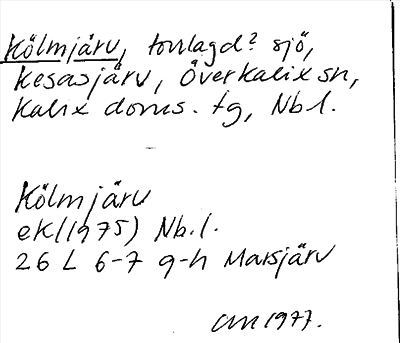 Kölmjärv, torrlagd? sjö,
Kesasjärv, Överkalix sn,
Kalix doms. tg, Nb.l.
Kölmjärv
ek (1975) Nb.l.
26 L 6-7 g-h Marsjärv
1977.